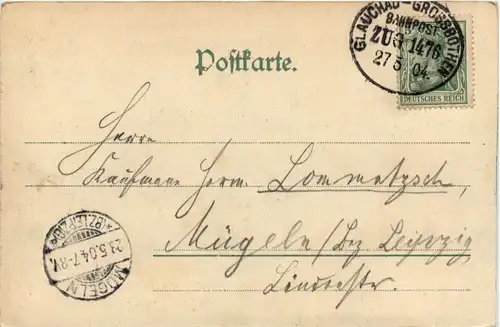 GLAUCHAU-GROSSBOTHEN
BAHNPOST
ZUG 1476
27 5 04
DEUTSCHES REICH
Postkarte.
Herrn
Kaufmann Herm. Lommatzsch,
Mügeln / Bz Leipzig
Lindenstr.
MÜGELN
(BZ. LEIPZIG)
5.04.7-8V.